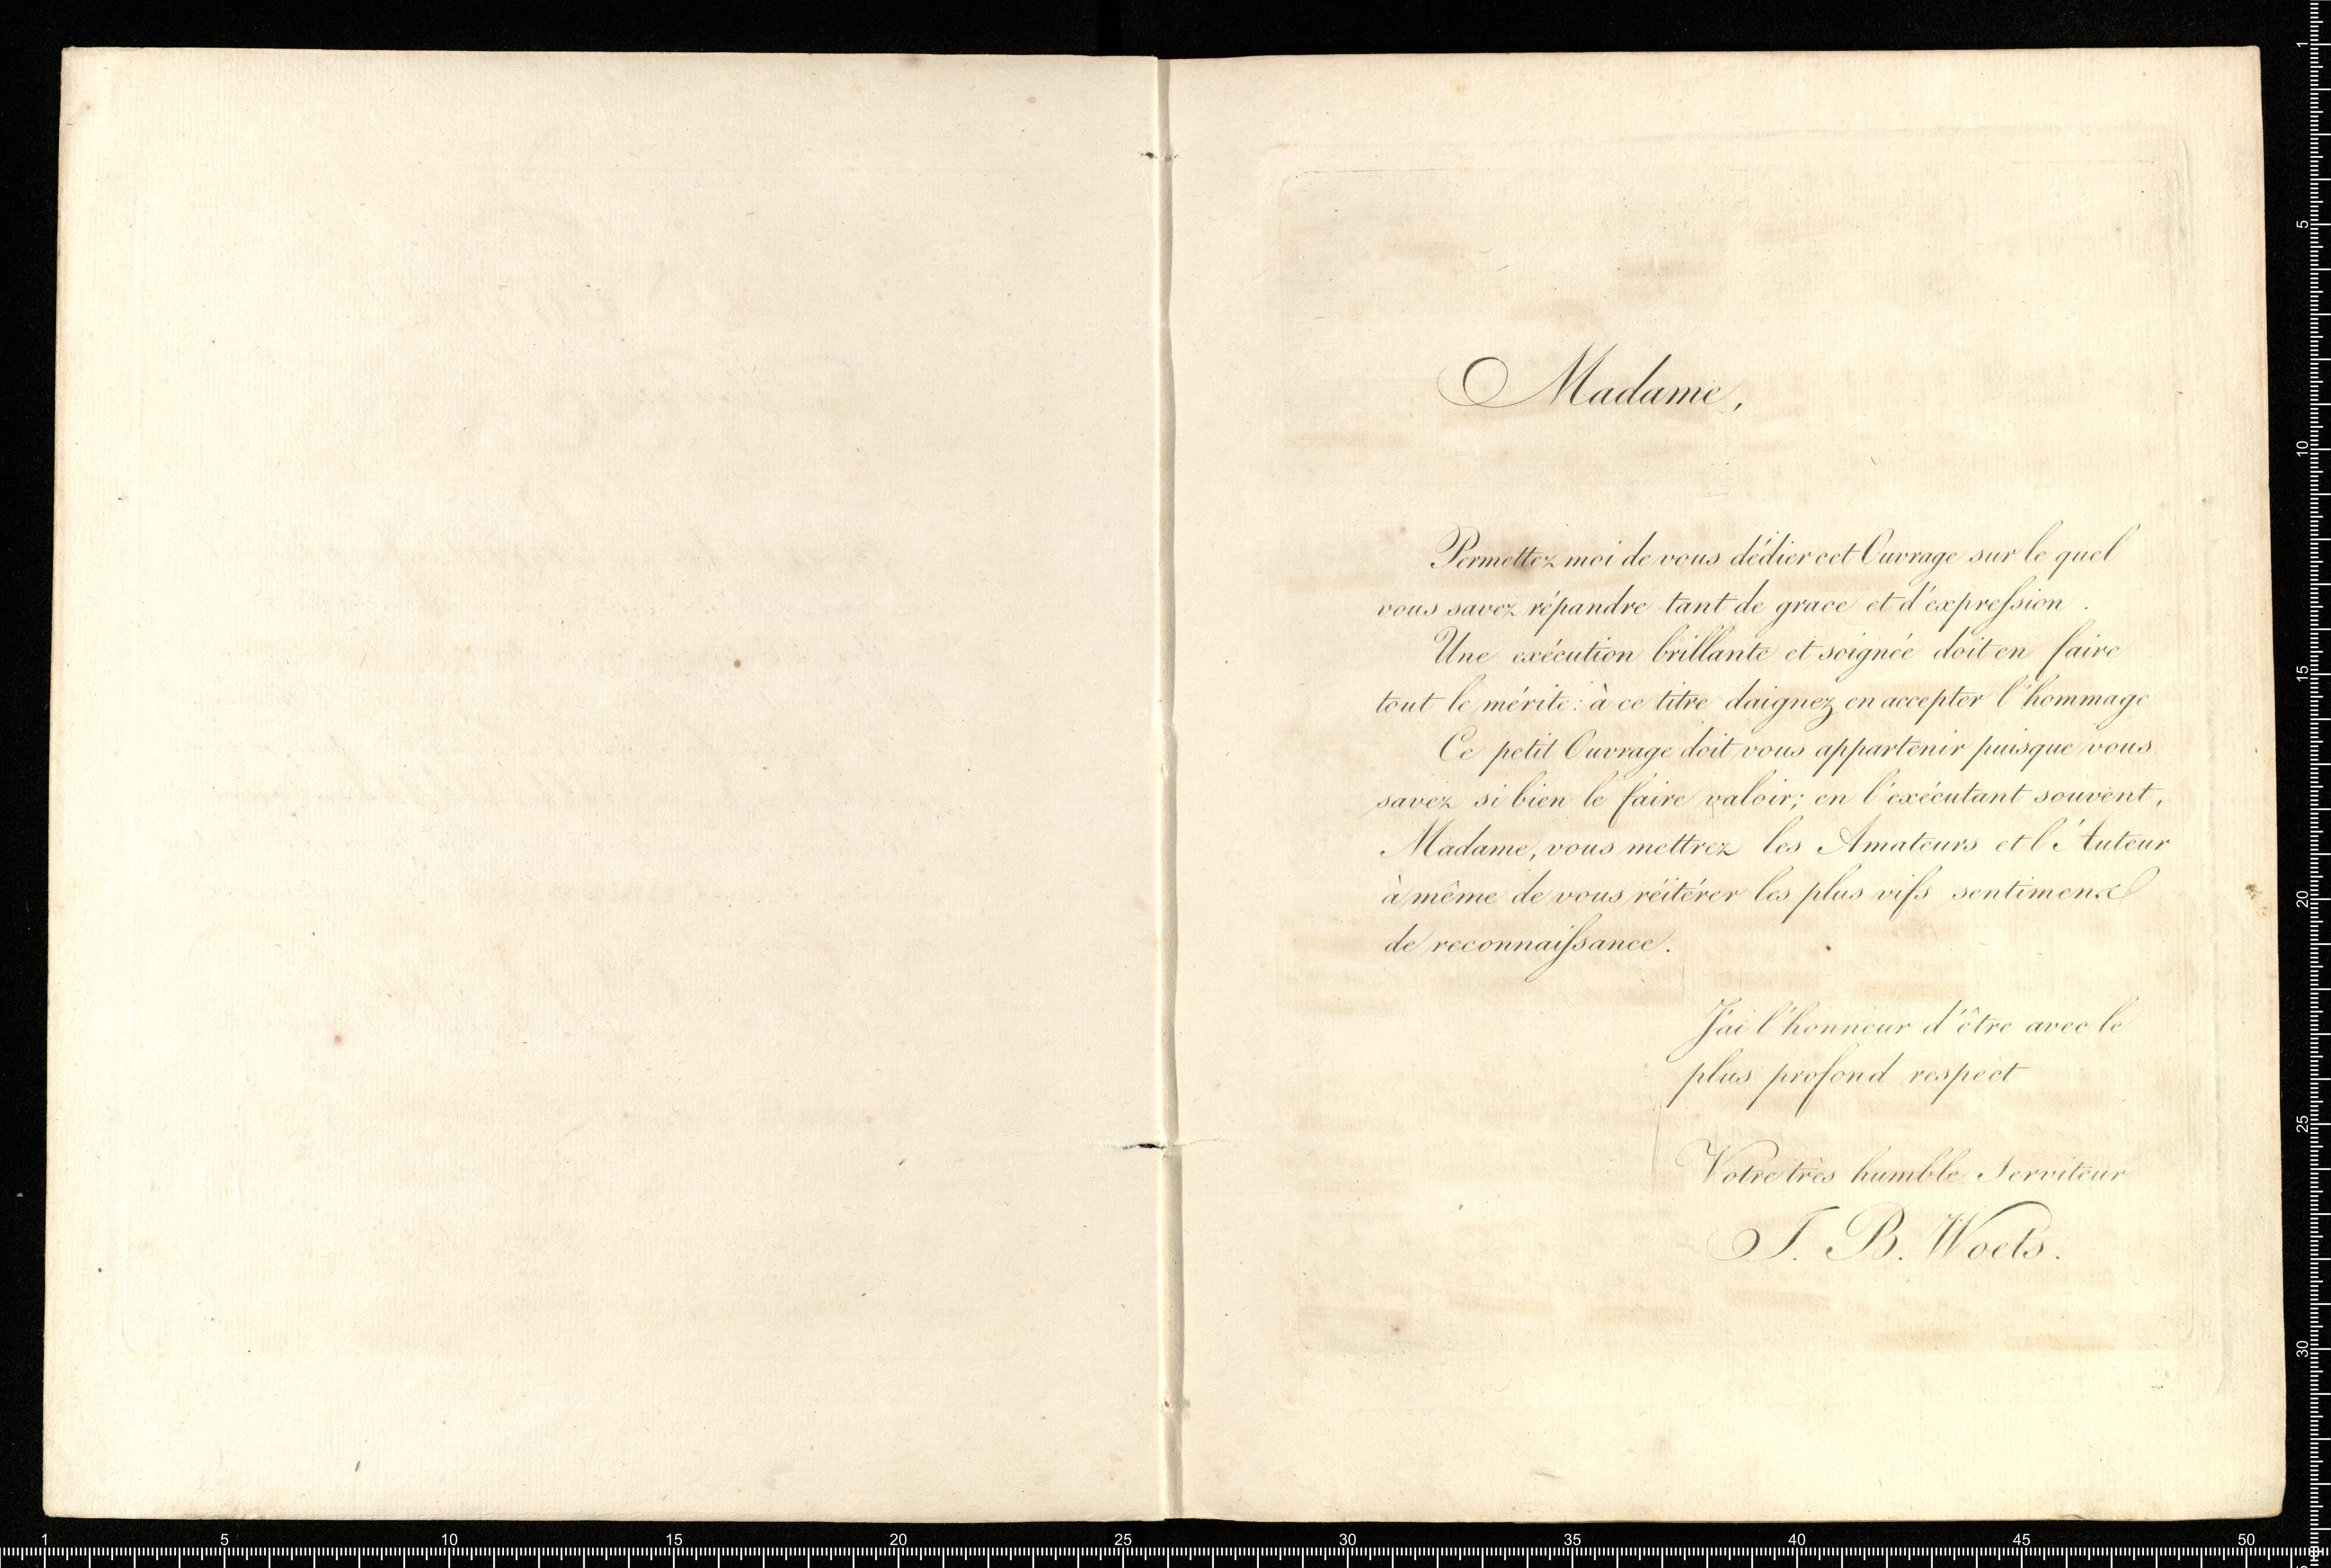 Madame,
Permettez moi de vous dédier cet Ouvrage sur le quel
vous savez répandre tant de grace et d'expreſsion.
Une exécution brillante et soignée doit en faire
tout le mérite: à ce titre daignez en accepter l'hommage
Ce petit Ouvrage doit vous appartenir puisque vous
savez si bien le faire valoir; en l'exécutant souvent,
Madame, vous mettrez les Amateurs et l'Auteur
à même de vous réitérer les plus vifs sentimens
de reconnaiſsance.
J'ai l'honneur d'être avec le
plus profond respect
Votre très humble Serviteur
J. B. Woets.
1 5 10 15 20 25 30 35 40 45 50
1
5
10
15
20
25
30